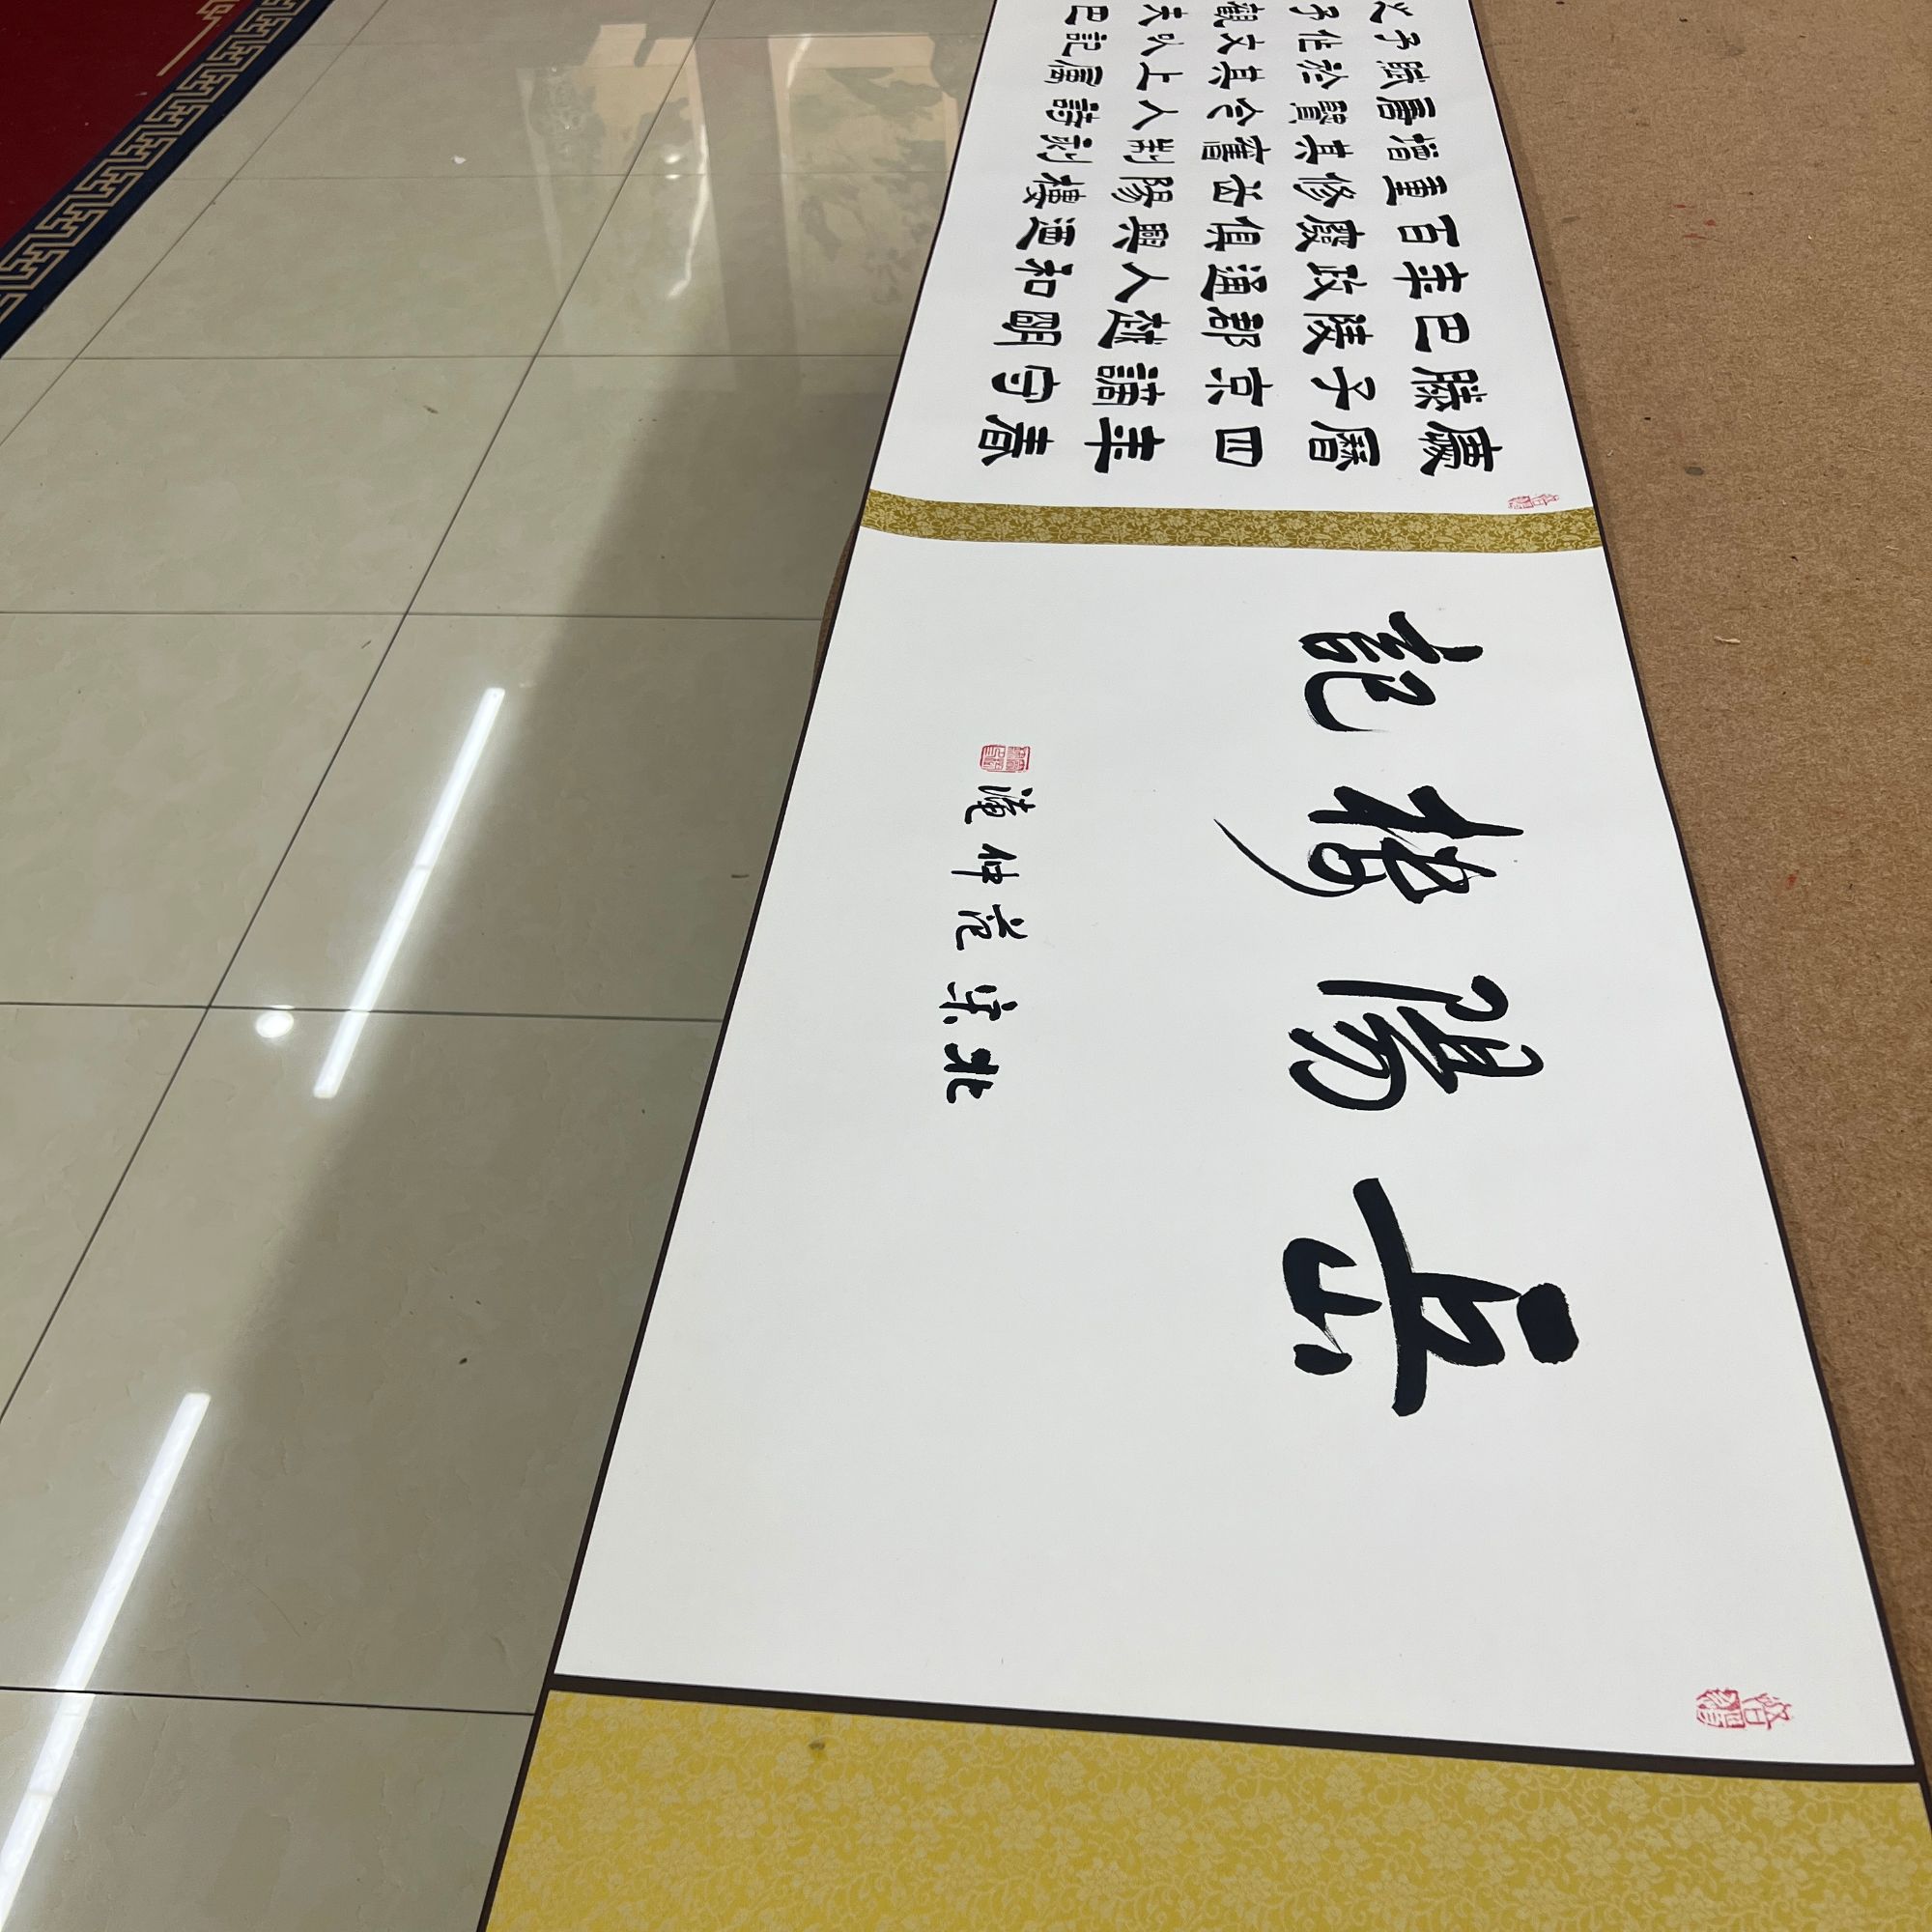 岳陽樓記
北宋 范仲淹
慶曆四年春
滕子京謫守
巴陵郡越明
年政通人和
百廢俱興迺
重修岳陽樓
增其舊制刻
唐賢今人詩
賦於其上屬
予作文以記
之予觀夫巴